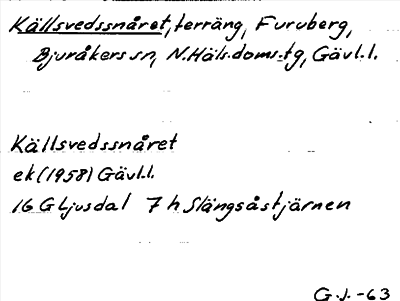 Källsvedssnåret, terräng, Furuberg,
Bjuråkers sn, N.Häls.doms.tg, Gävl.l.
Källsvedssnåret
ek (1958) Gävl.l.
16 G Ljusdal 7 h Slängsåstjärnen
G.J.-63